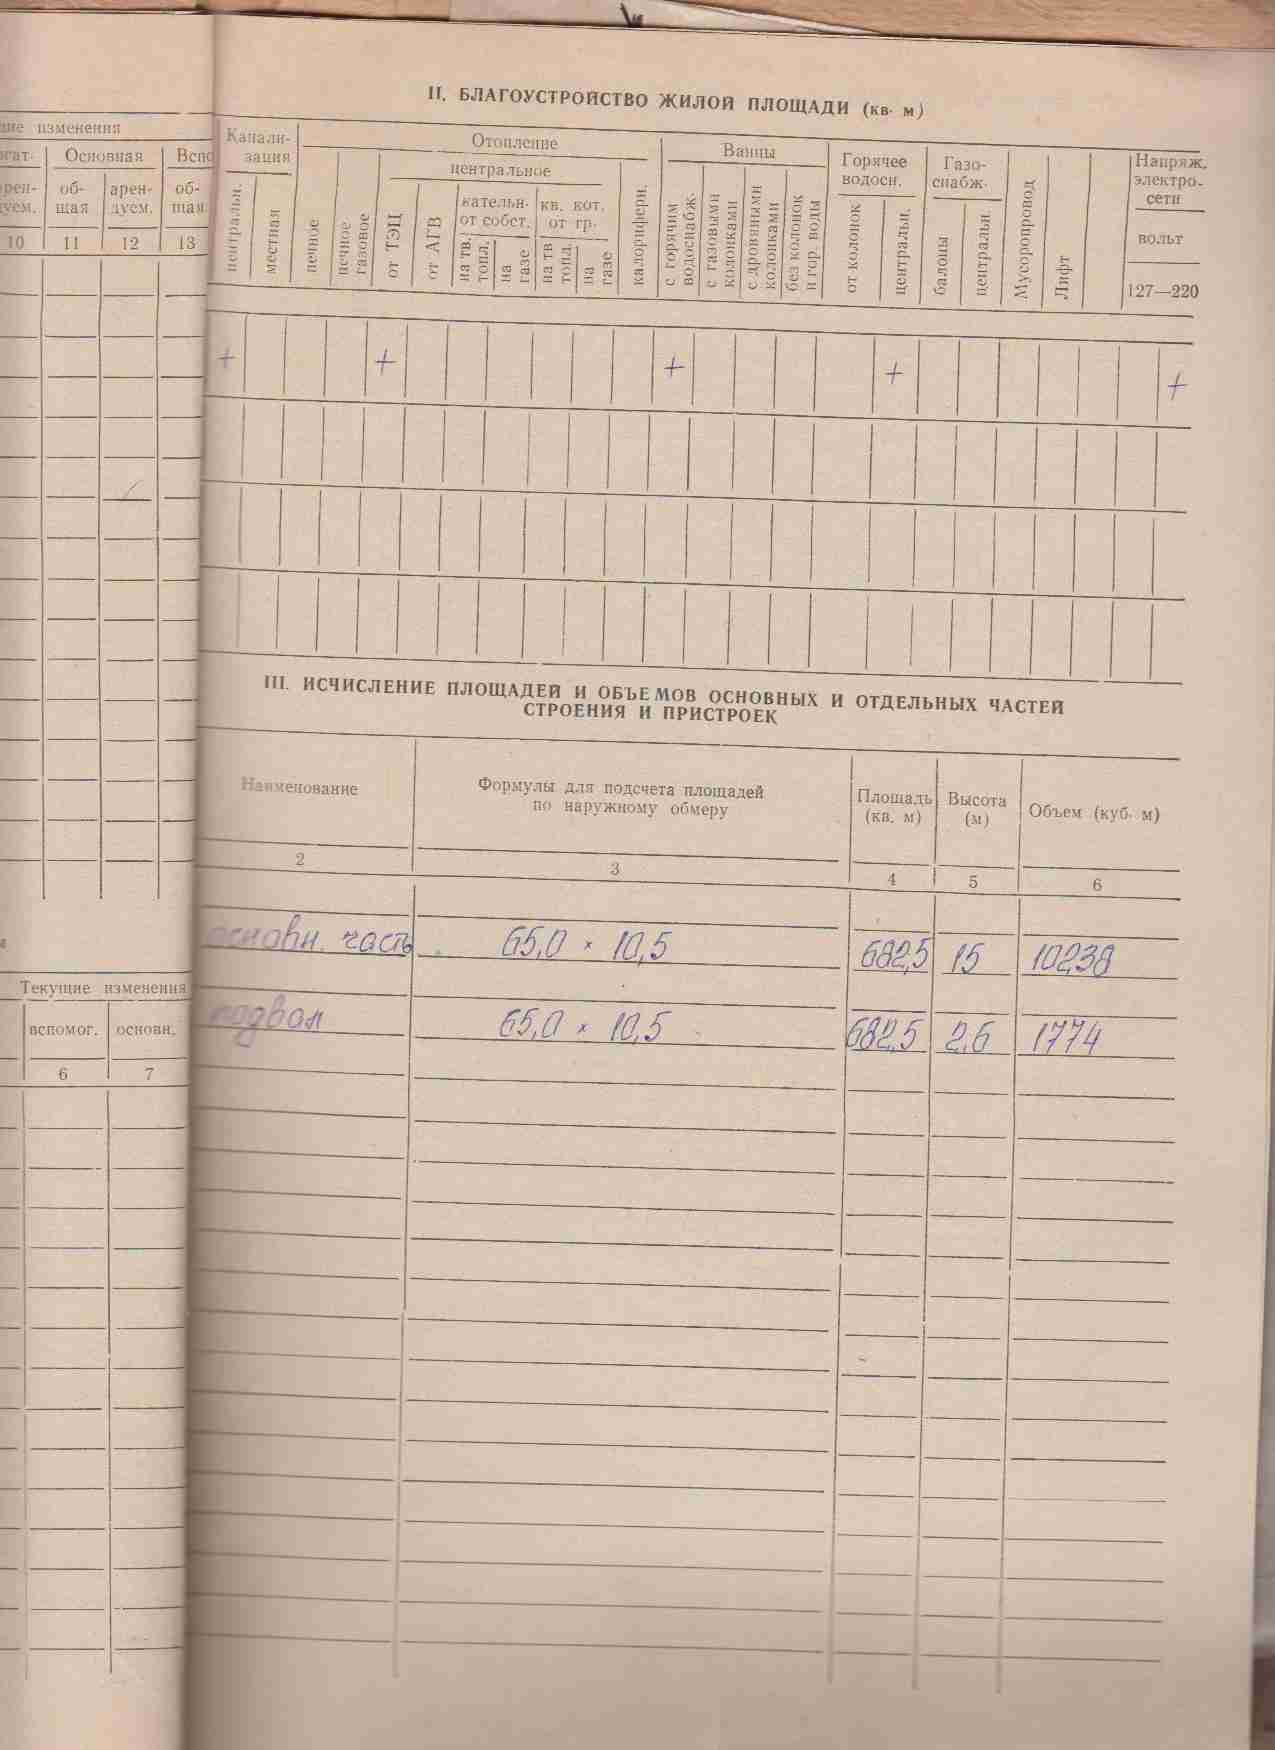 II. БЛАГОУСТРОЙСТВО ЖИЛОЙ ПЛОЩАДИ (кв. м)
изменения
Основная
об-
щая
арен-
дуем.
об-
щая
10
11
12
13
Канали-
зация
центральн.
местная
Отопление
печное
печное
газовое
центральное
от ТЭЦ
от АГВ
кательн-
от собст.
на тв.
топл.
на
газе
кв. кот.
от гр.
на тв
топл.
на
газе
калорифери.
Ванны
с горячим
водоснабж.
с газовыми
колонками
с дровяными
колонками
без колонок
и гор. воды
Горячее
водосн.
от колонок
центральн.
Газо-
снабж.
балоны
центральн.
Мусоропровод
Лифт
Напряж.
электро-
сети
вольт
127—220
+ + + + +
III. ИСЧИСЛЕНИЕ ПЛОЩАДЕЙ И ОБЪЕМОВ ОСНОВНЫХ И ОТДЕЛЬНЫХ ЧАСТЕЙ
СТРОЕНИЯ И ПРИСТРОЕК
Наименование
Формулы для подсчета площадей
по наружному обмеру
Площадь
(кв. м)
Высота
(м)
Объем (куб. м)
2 3 4 5 6
основн. часть 65,0 × 10,5 682,5 15 10238
подвал 65,0 × 10,5 682,5 2,6 1774
Текущие изменения
вспомог. основн.
6 7